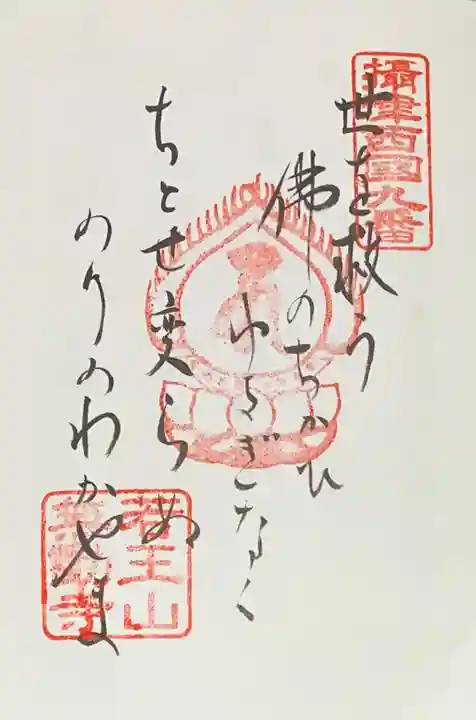 攝津西國九番
世を救う
佛のちかひ
ゆるぎなく
ちとせ変らぬ
のりのわかやま
若王山
無動寺